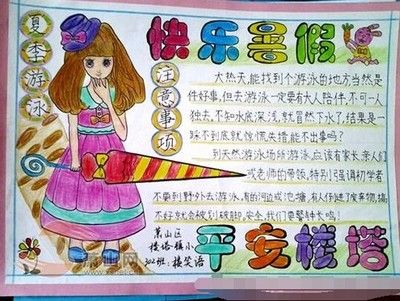 快乐暑假
夏季游泳
注意事项
大热天,能找到个游泳的地方当然是
件好事,但去游泳一定要有大人陪伴,不可一人
独去,不知水底深浅,就冒然下水了,结果是一
踩不到底就惊慌失措能不出事吗?
到天然游泳场所游泳应该有家长亲人们
或老师的带领,特别强调初学者
不要到野外去游泳,有的河边或池塘,有人仔进了废弃物,搞
不好就会被划破脚,安全,我们要警钟长鸣!
萧山区
楼塔镇小
班:楼笑语
平安楼塔